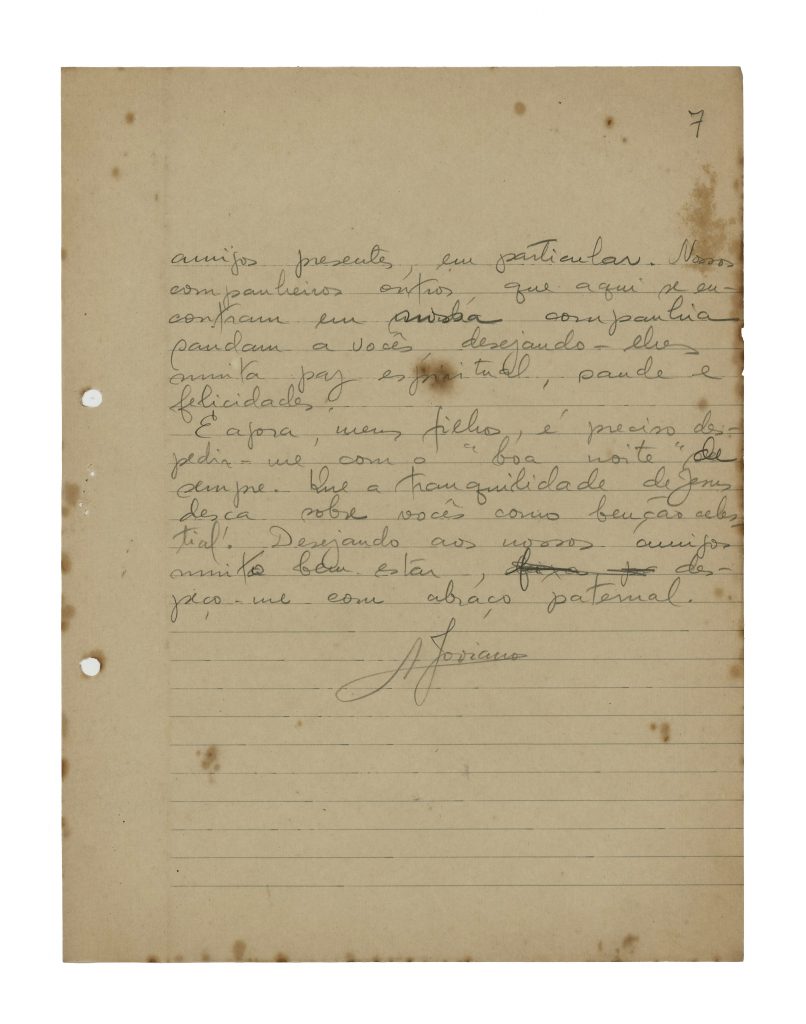 7
amigos presentes, em particular. Nossos
companheiros outros, que aqui se en-
contram em nossa companhia
saudam a vocês desejando-lhes
muita paz espiritual, saude e
felicidades.
E agora, meus filhos, é preciso des-
pedir-me com o "boa noite" de
sempre. Que a tranquilidade de Jesus
desça sobre vocês como benção celes-
tial! Desejando aos nossos amigos
muito bem estar, des-
peço-me com abraço paternal.
A Joviano